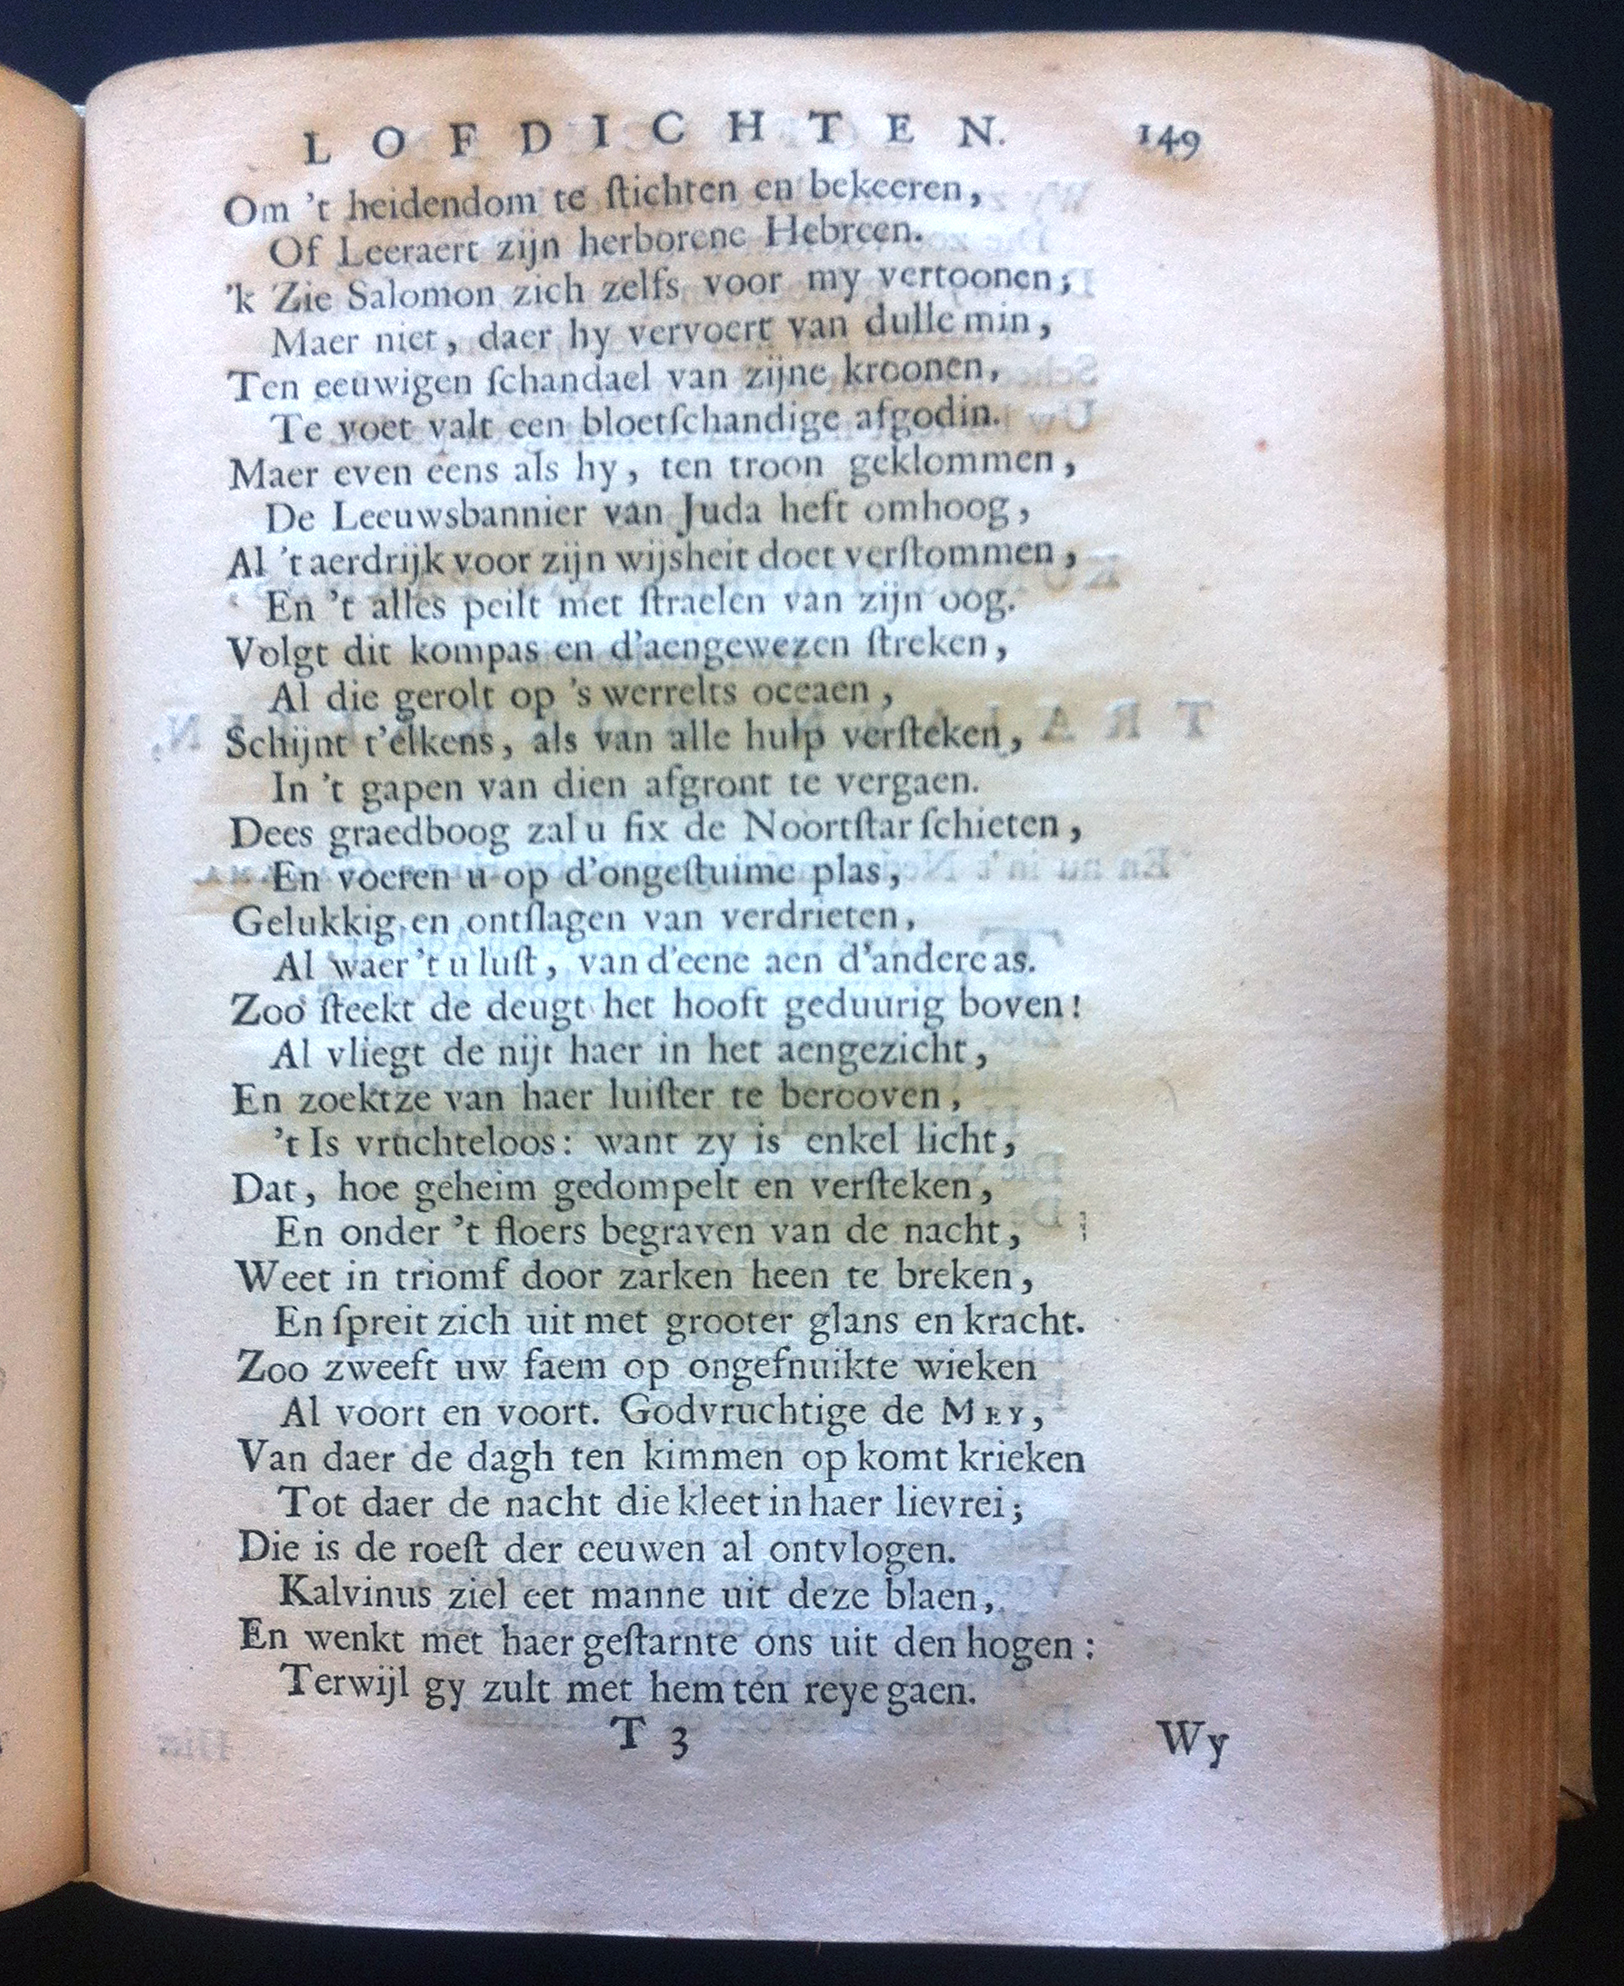 LOFDICHTEN. 149
Om 't heidendom te ſtichten en bekeeren,
Of Leeraert zijn herborene Hebreen.
'k Zie Salomon zich zelfs voor my vertoonen;
Maer niet, daer hy vervoert van dulle min,
Ten eeuwigen ſchandael van zijne kroonen,
Te voet valt een bloetſchandige afgodin.
Maer even eens als hy, ten troon geklommen,
De Leeuwsbannier van Juda heft omhoog,
Al 't aerdrijk voor zijn wijsheit doet verſtommen,
En 't alles peilt met ſtraelen van zijn oog.
Volgt dit kompas en d'aengewezen ſtreken,
Al die gerolt op 's werrelts oceaen,
Schijnt t'elkens, als van alle hulp verſteken,
In 't gapen van dien afgront te vergaen.
Dees graedboog zal u fix de Noortſtar ſchieten,
En voeren u op d'ongeſtuime plas,
Gelukkig en ontſlagen van verdrieten,
Al waer 't u luſt, van d'eene aen d'andere as.
Zoo ſteekt de deugt het hooft geduurig boven!
Al vliegt de nijt haer in het aengezicht,
En zoektze van haer luiſter te berooven,
't Is vruchteloos: want zy is enkel licht,
Dat, hoe geheim gedompelt en verſteken,
En onder 't floers begraven van de nacht,
Weet in triomf door zarken heen te breken,
En ſpreit zich uit met grooter glans en kracht.
Zoo zweeft uw faem op ongeſnuikte wieken
Al voort en voort. Godvruchtige de MEY,
Van daer de dagh ten kimmen op komt krieken
Tot daer de nacht die kleet in haer lievrei;
Die is de roeſt der eeuwen al ontvlogen.
Kalvinus ziel eet manne uit deze blaen,
En wenkt met haer geſtarnte ons uit den hogen:
Terwijl gy zult met hem ten reye gaen.
T 3 Wy